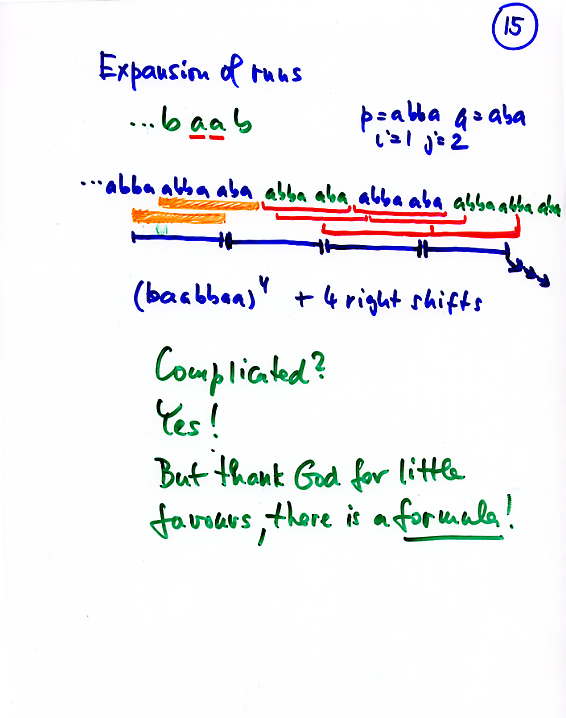 15
Expansion of runs
...b a a b
p=abba q=aba
i=1 j=2
...abba abba aba abba aba abba aba abba abba aba
(baabbaa)⁴ + 4 right shifts
Complicated?
Yes!
But thank God for little
favours, there is a formula!